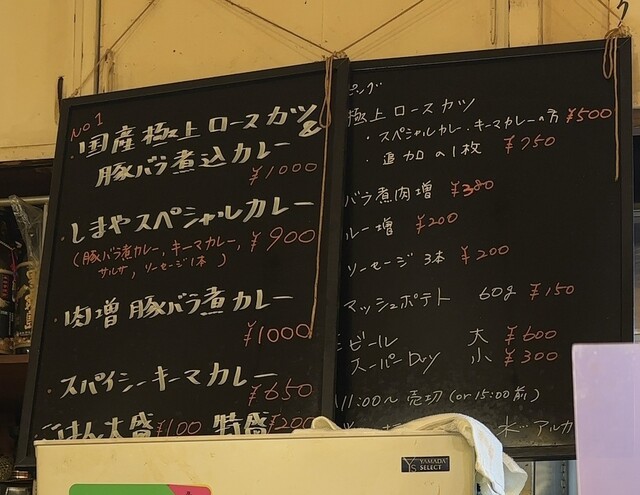 No 1
・国産極上ロースカツ&
豚バラ煮込カレー
¥1000
・しまやスペシャルカレー
(豚バラ煮カレー、キーマカレー、 ¥900
サルサ、ソーセージ1本)
・肉増豚バラ煮カレー
¥1000
・スパイシーキーマカレー
¥650
ごはん大盛¥100 特盛¥200
ピング
極上ロースカツ
・スペシャルカレー・キーマカレーの方 ¥500
・追加の1枚 ¥750
バラ煮肉増 ¥380
ルー増 ¥200
ソーセージ3本 ¥200
マッシュポテト 60g ¥150
ビール 大 ¥600
スーパーDry 小 ¥300
11:00~売切(or 15:00前)
水 アルカ
YAMADA
SELECT